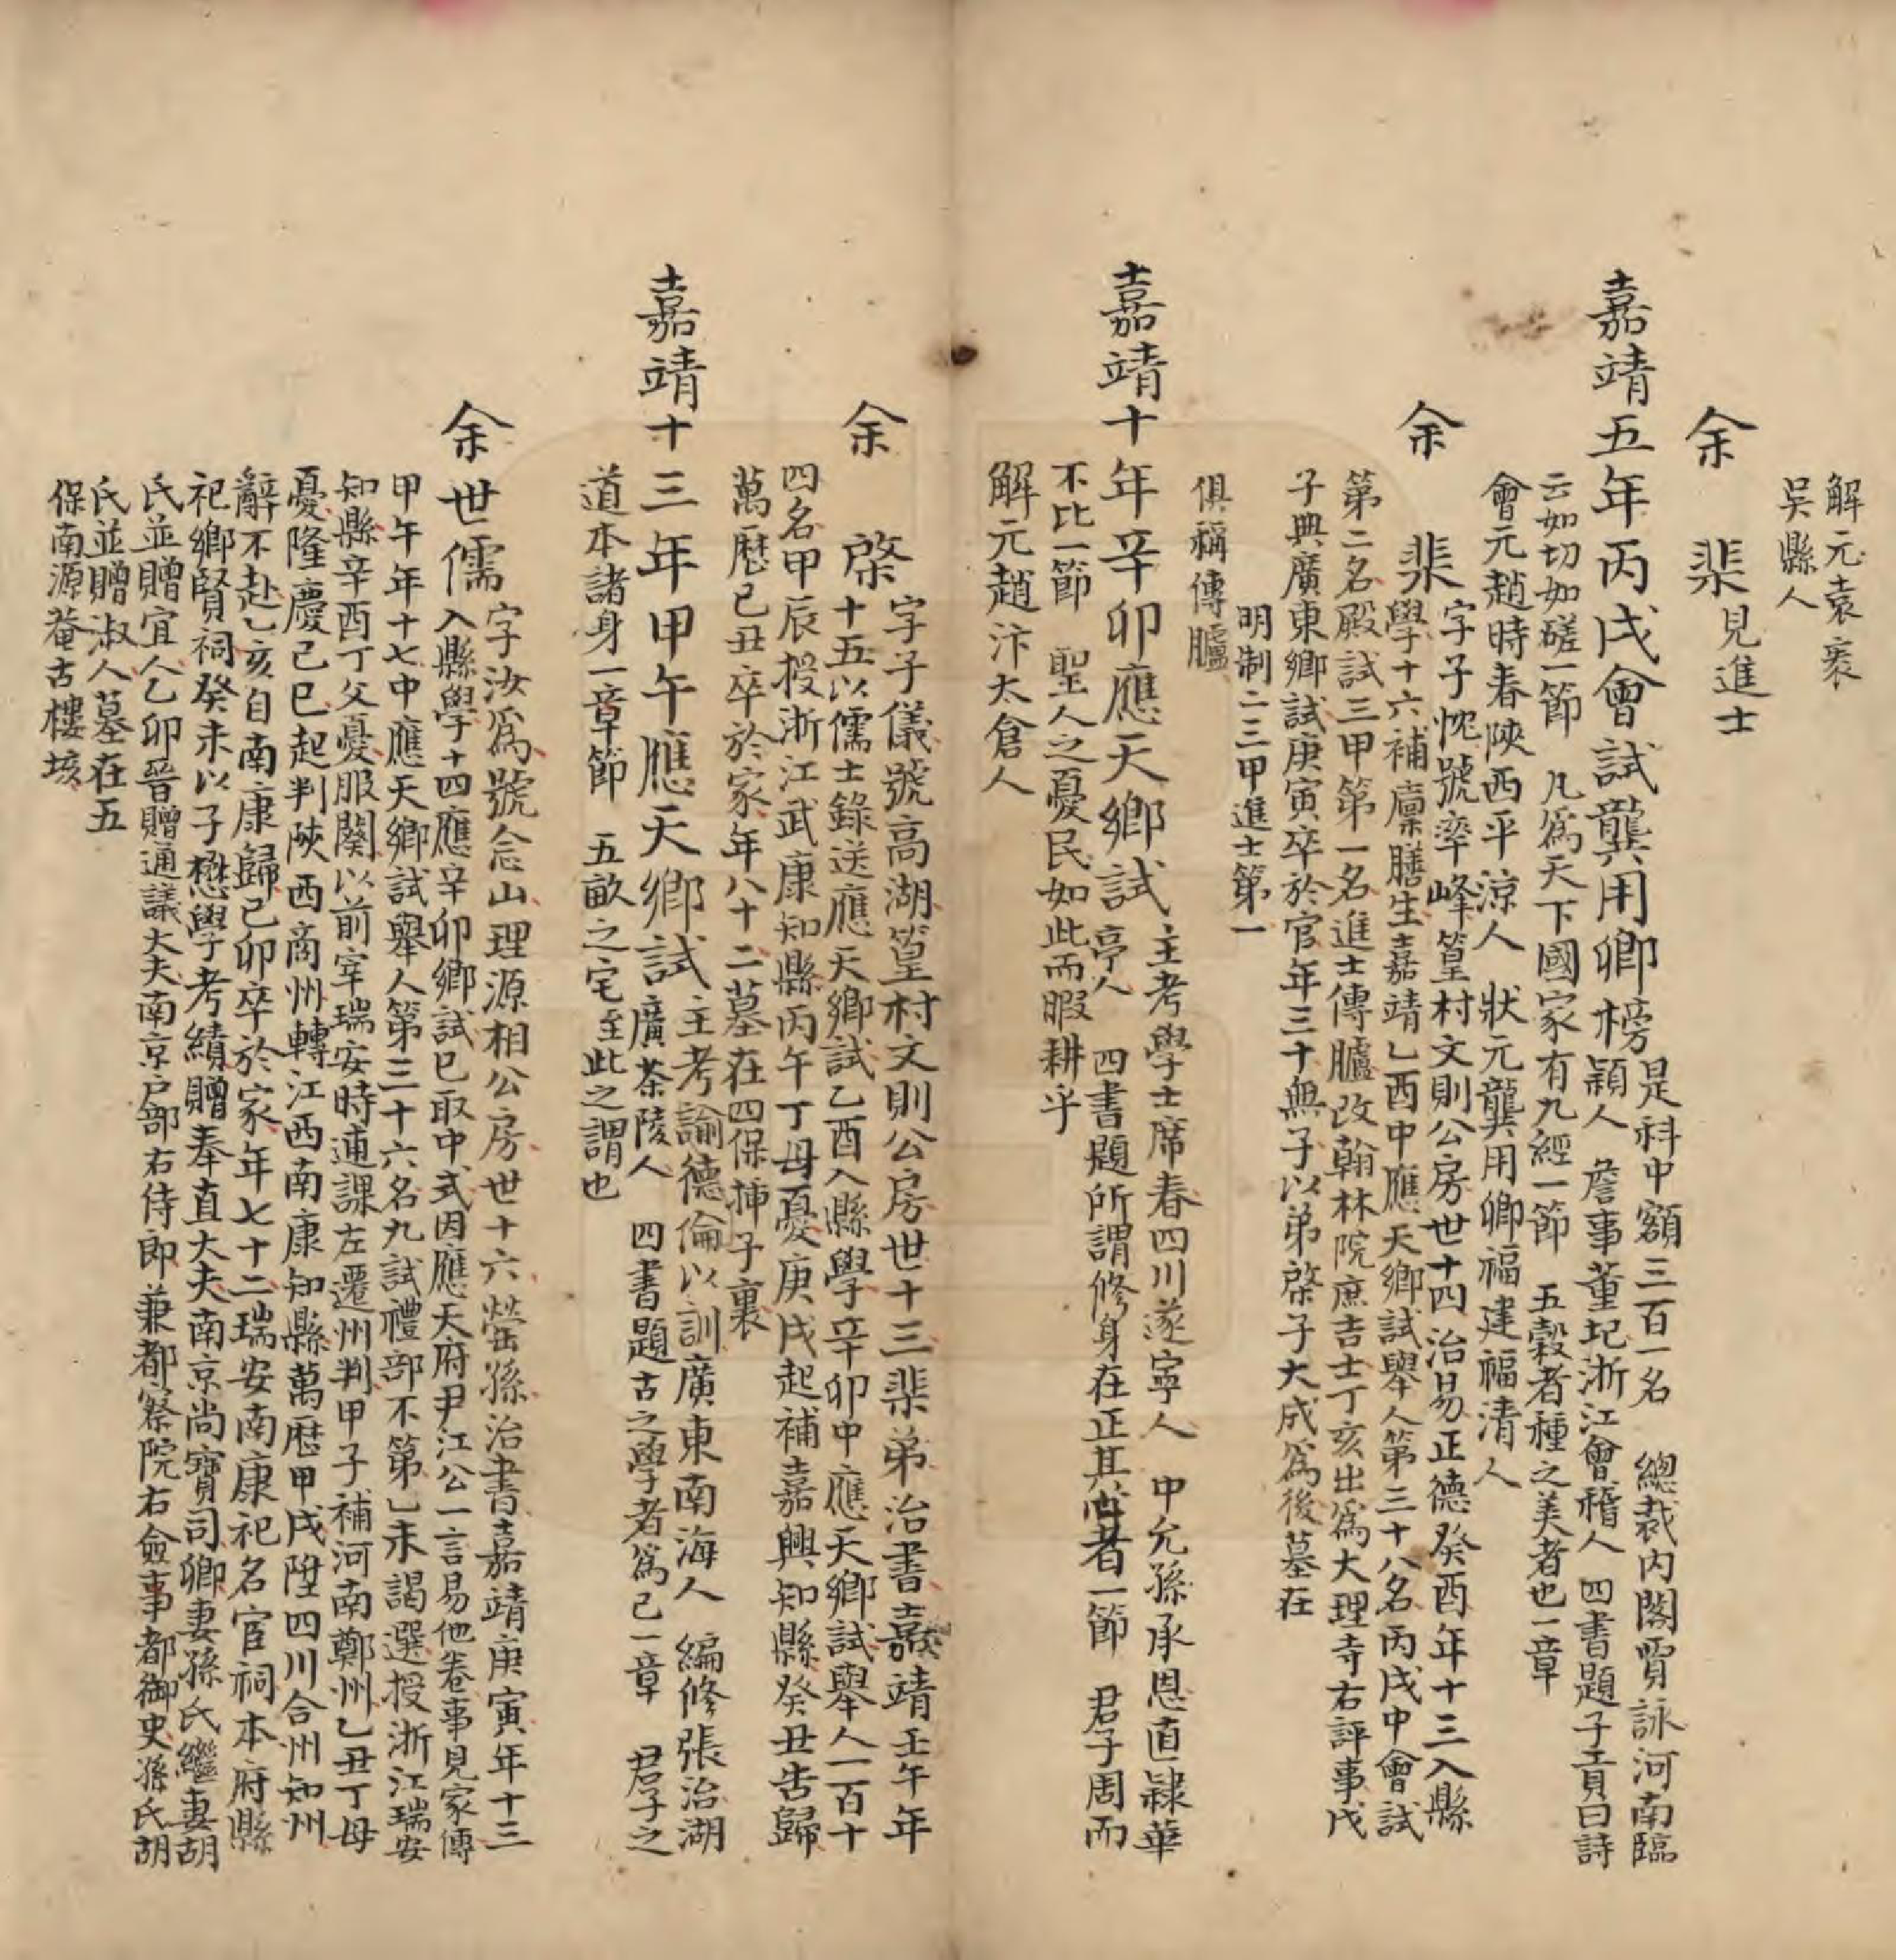 解元袁袠
吳縣人
余　棐見進士
嘉靖五年丙戌會試龔用卿榜是科中額三百一名　總裁內閣賈詠河南臨
潁人　詹事董玘浙江會稽人　四書題子貢曰詩
云如切如磋一節　凡爲天下國家有九經一節　五穀者種之美者也一章
會元趙時春陝西平涼人　狀元龔用卿福建福清人
余　棐字子忱號率峰篁村文則公房世十四治易正德癸酉年十三入縣
學十六補廩膳生嘉靖乙酉中應天鄉試舉人第三十八名丙戌中會試
第二名殿試三甲第一名進士傳臚改翰林院庶吉士丁亥出爲大理寺右評事戊
子典廣東鄉試庚寅卒於官年三十無子以弟棨子大成爲後墓在
明制二三甲進士第一
俱稱傳臚
嘉靖十年辛卯應天鄉試主考學士席春四川遂寧人　中允孫承恩直隸華
亭人　四書題所謂修身在正其心者一節　君子周而
不比一節　聖人之憂民如此而暇耕乎
解元趙汴太倉人
余　棨字子儀號高湖篁村文則公房世十三棐弟治書嘉靖壬午年
十五以儒士錄送應天鄉試乙酉入縣學辛卯中應天鄉試舉人一百十
四名甲辰授浙江武康知縣丙午丁母憂庚戌起補嘉興知縣癸丑告歸
萬曆己丑卒於家年八十二墓在四保揷子裏
嘉靖十三年甲午應天鄉試主考諭德倫以訓廣東南海人　編修張治湖
廣茶陵人　四書題古之學者爲己一章　君子之
道本諸身一章節　五畝之宅至此之謂也
余世儒字汝爲號念山理源相公房世十六罃孫治書嘉靖庚寅年十三
入縣學十四應辛卯鄉試已取中式因應天府尹江公一言易他卷事見家傳
甲午年十七中應天鄉試舉人第三十六名九試禮部不第乙未謁選授浙江瑞安
知縣辛酉丁父憂服闋以前宰瑞安時逋課左遷州判甲子補河南鄭州乙丑丁母
憂隆慶己巳起判陝西商州轉江西南康知縣萬曆甲戌陞四川合州知州
辭不赴乙亥自南康歸己卯卒於家年七十二瑞安南康祀名宦祠本府縣
祀鄉賢祠癸未以子懋學考績贈奉直大夫南京尚寶司卿妻孫氏繼妻胡
氏並贈宜人乙卯晉贈通議大夫南京戶部右侍郎兼都察院右僉事都御史孫氏胡
氏並贈淑人墓在五
保南源菴古樓垓